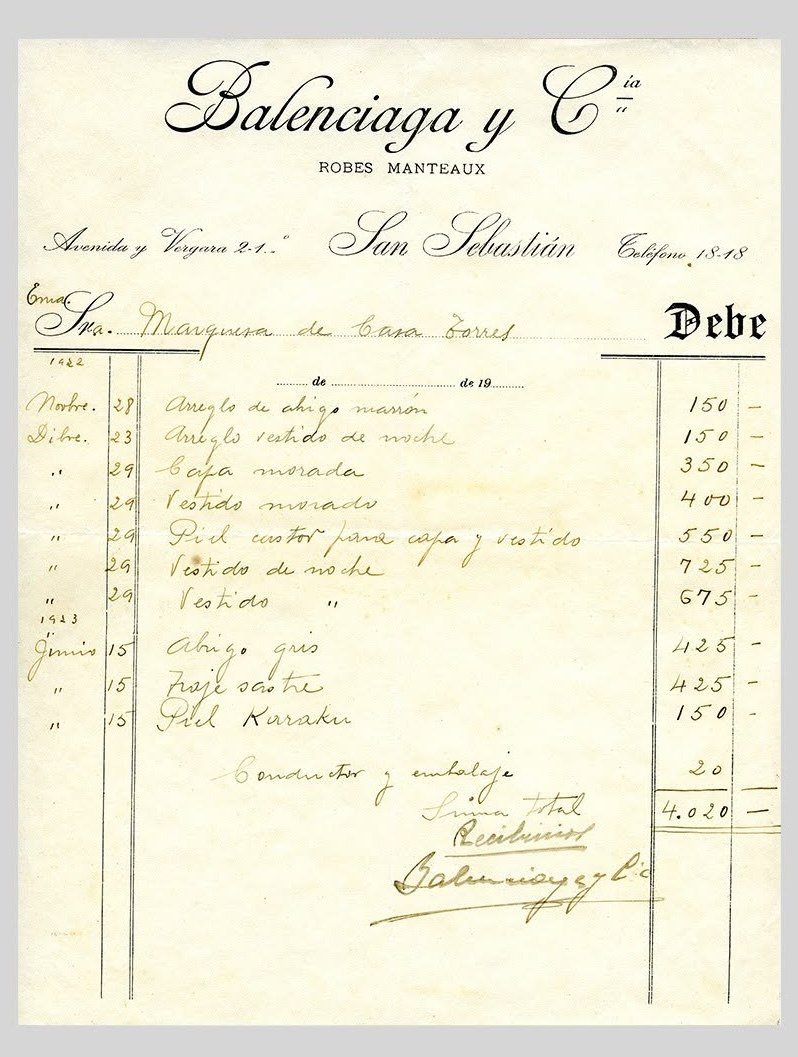 Balenciaga y Cía
ROBES MANTEAUX
Avenida y Vergara 2-1.º San Sebastián Teléfono 18-18
Exma.
Sra. Marquesa de Casa Torres Debe
1922
de de 19
Novbre. 28 Arreglo de abrigo marrón 150 -
Dibre. 23 Arreglo vestido de noche 150 -
" 29 Capa morada 350 -
" 29 Vestido morado 400 -
" 29 Piel castor para capa y vestido 550 -
" 29 Vestido de noche 725 -
" 29 Vestido " 675 -
1923
Junio 15 Abrigo gris 425 -
" 15 Traje sastre 425 -
" 15 Piel Karaku 150 -
Conductor y embalaje 20
Suma total 4.020 -
Recibimos
Balenciaga y Cia